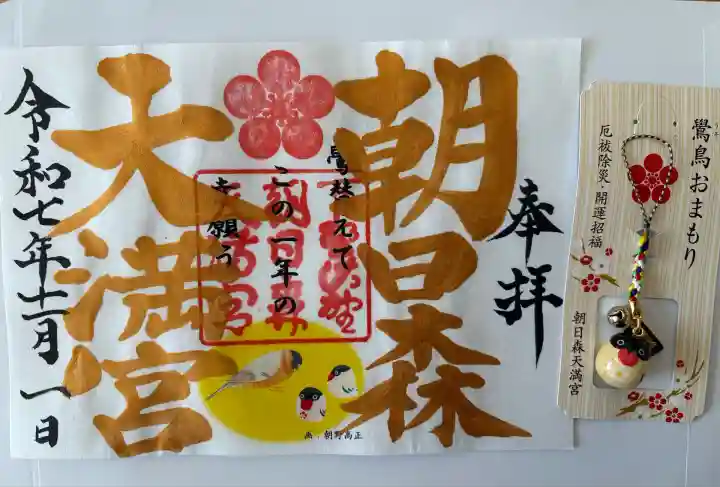 奉拝
朝日森
天満宮
鷽替えて
この一年の
幸願う
朝日森
天満宮
令和七年十一月一日
画：朝野高正
鷽鳥おまもり
厄祓除災・開運招福
朝日森天満宮